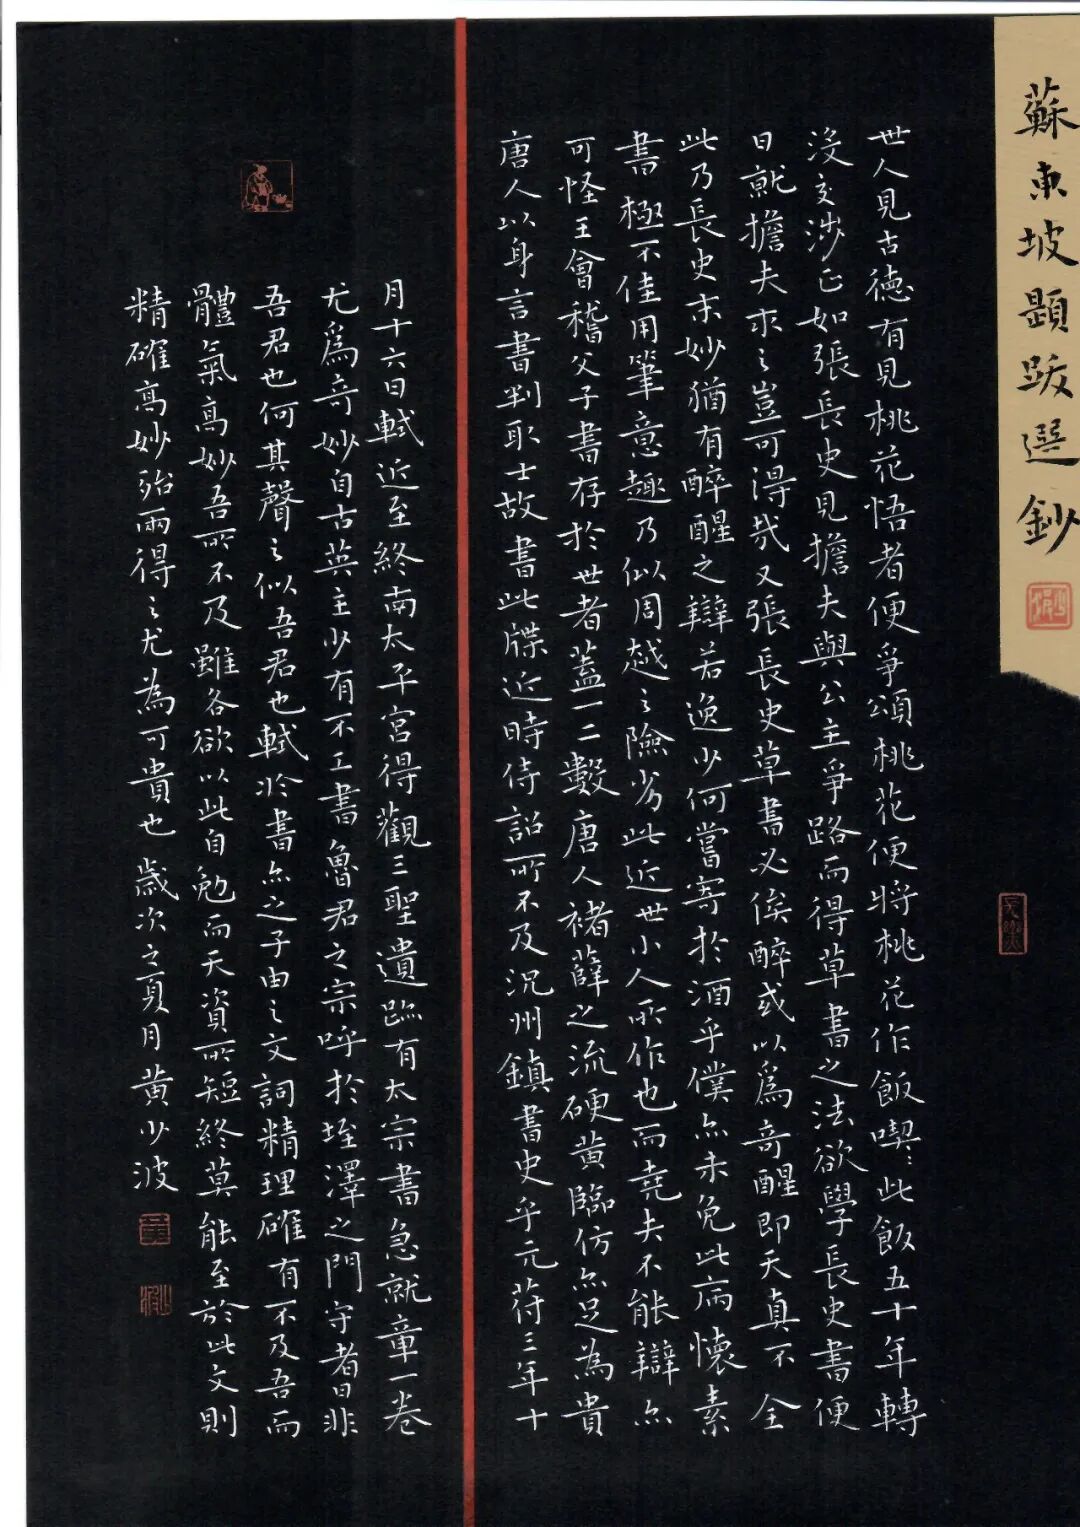 蘇東坡題跋選鈔
世人見古德有見桃花悟者便爭頌桃花便將桃花作飯喫此飯五十年轉
沒交涉正如張長史見擔夫與公主爭路而得草書之法欲學長史書便
日就擔夫求之豈可得哉又張長史草書必俟醉或以爲奇醒即天真不全
此乃長史未妙猶有醉醒之辯若逸少何嘗寄於酒乎僕亦未免此病懷素
書極不佳用筆意趣乃似周越之險劣此近世小人所作也而堯夫不能辯亦
可怪王會稽父子書存於世者蓋一二數唐人褚薛之流硬黄臨仿亦足為貴
唐人以身言書判取士故書此牒近時待詔所不及況州鎮書史乎元符三年十
月十六日軾近至終南太平宮得觀三聖遺跡有太宗書急就章一卷
尤爲奇妙自古英主少有不工書魯君之宗呼於垤澤之門守者曰非
吾君也何其聲之似吾君也軾於書亦之子由之文詞精理確有不及吾而
體氣高妙吾所不及雖各欲以此自勉而天資所短終莫能至於此文則
精確高妙殆兩得之尤為可貴也歲次之夏月黄少波